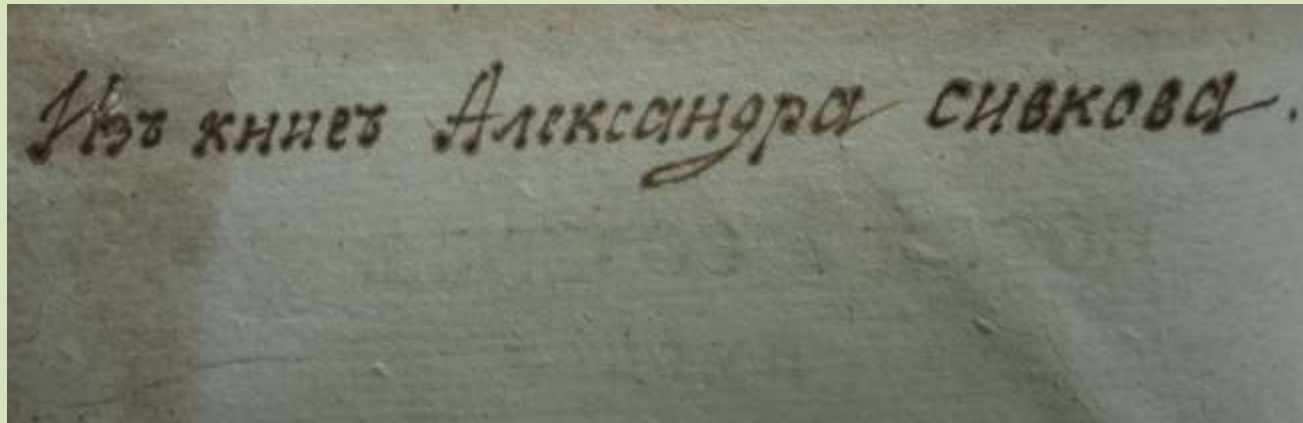 Изъ книгъ Александра сивкова.